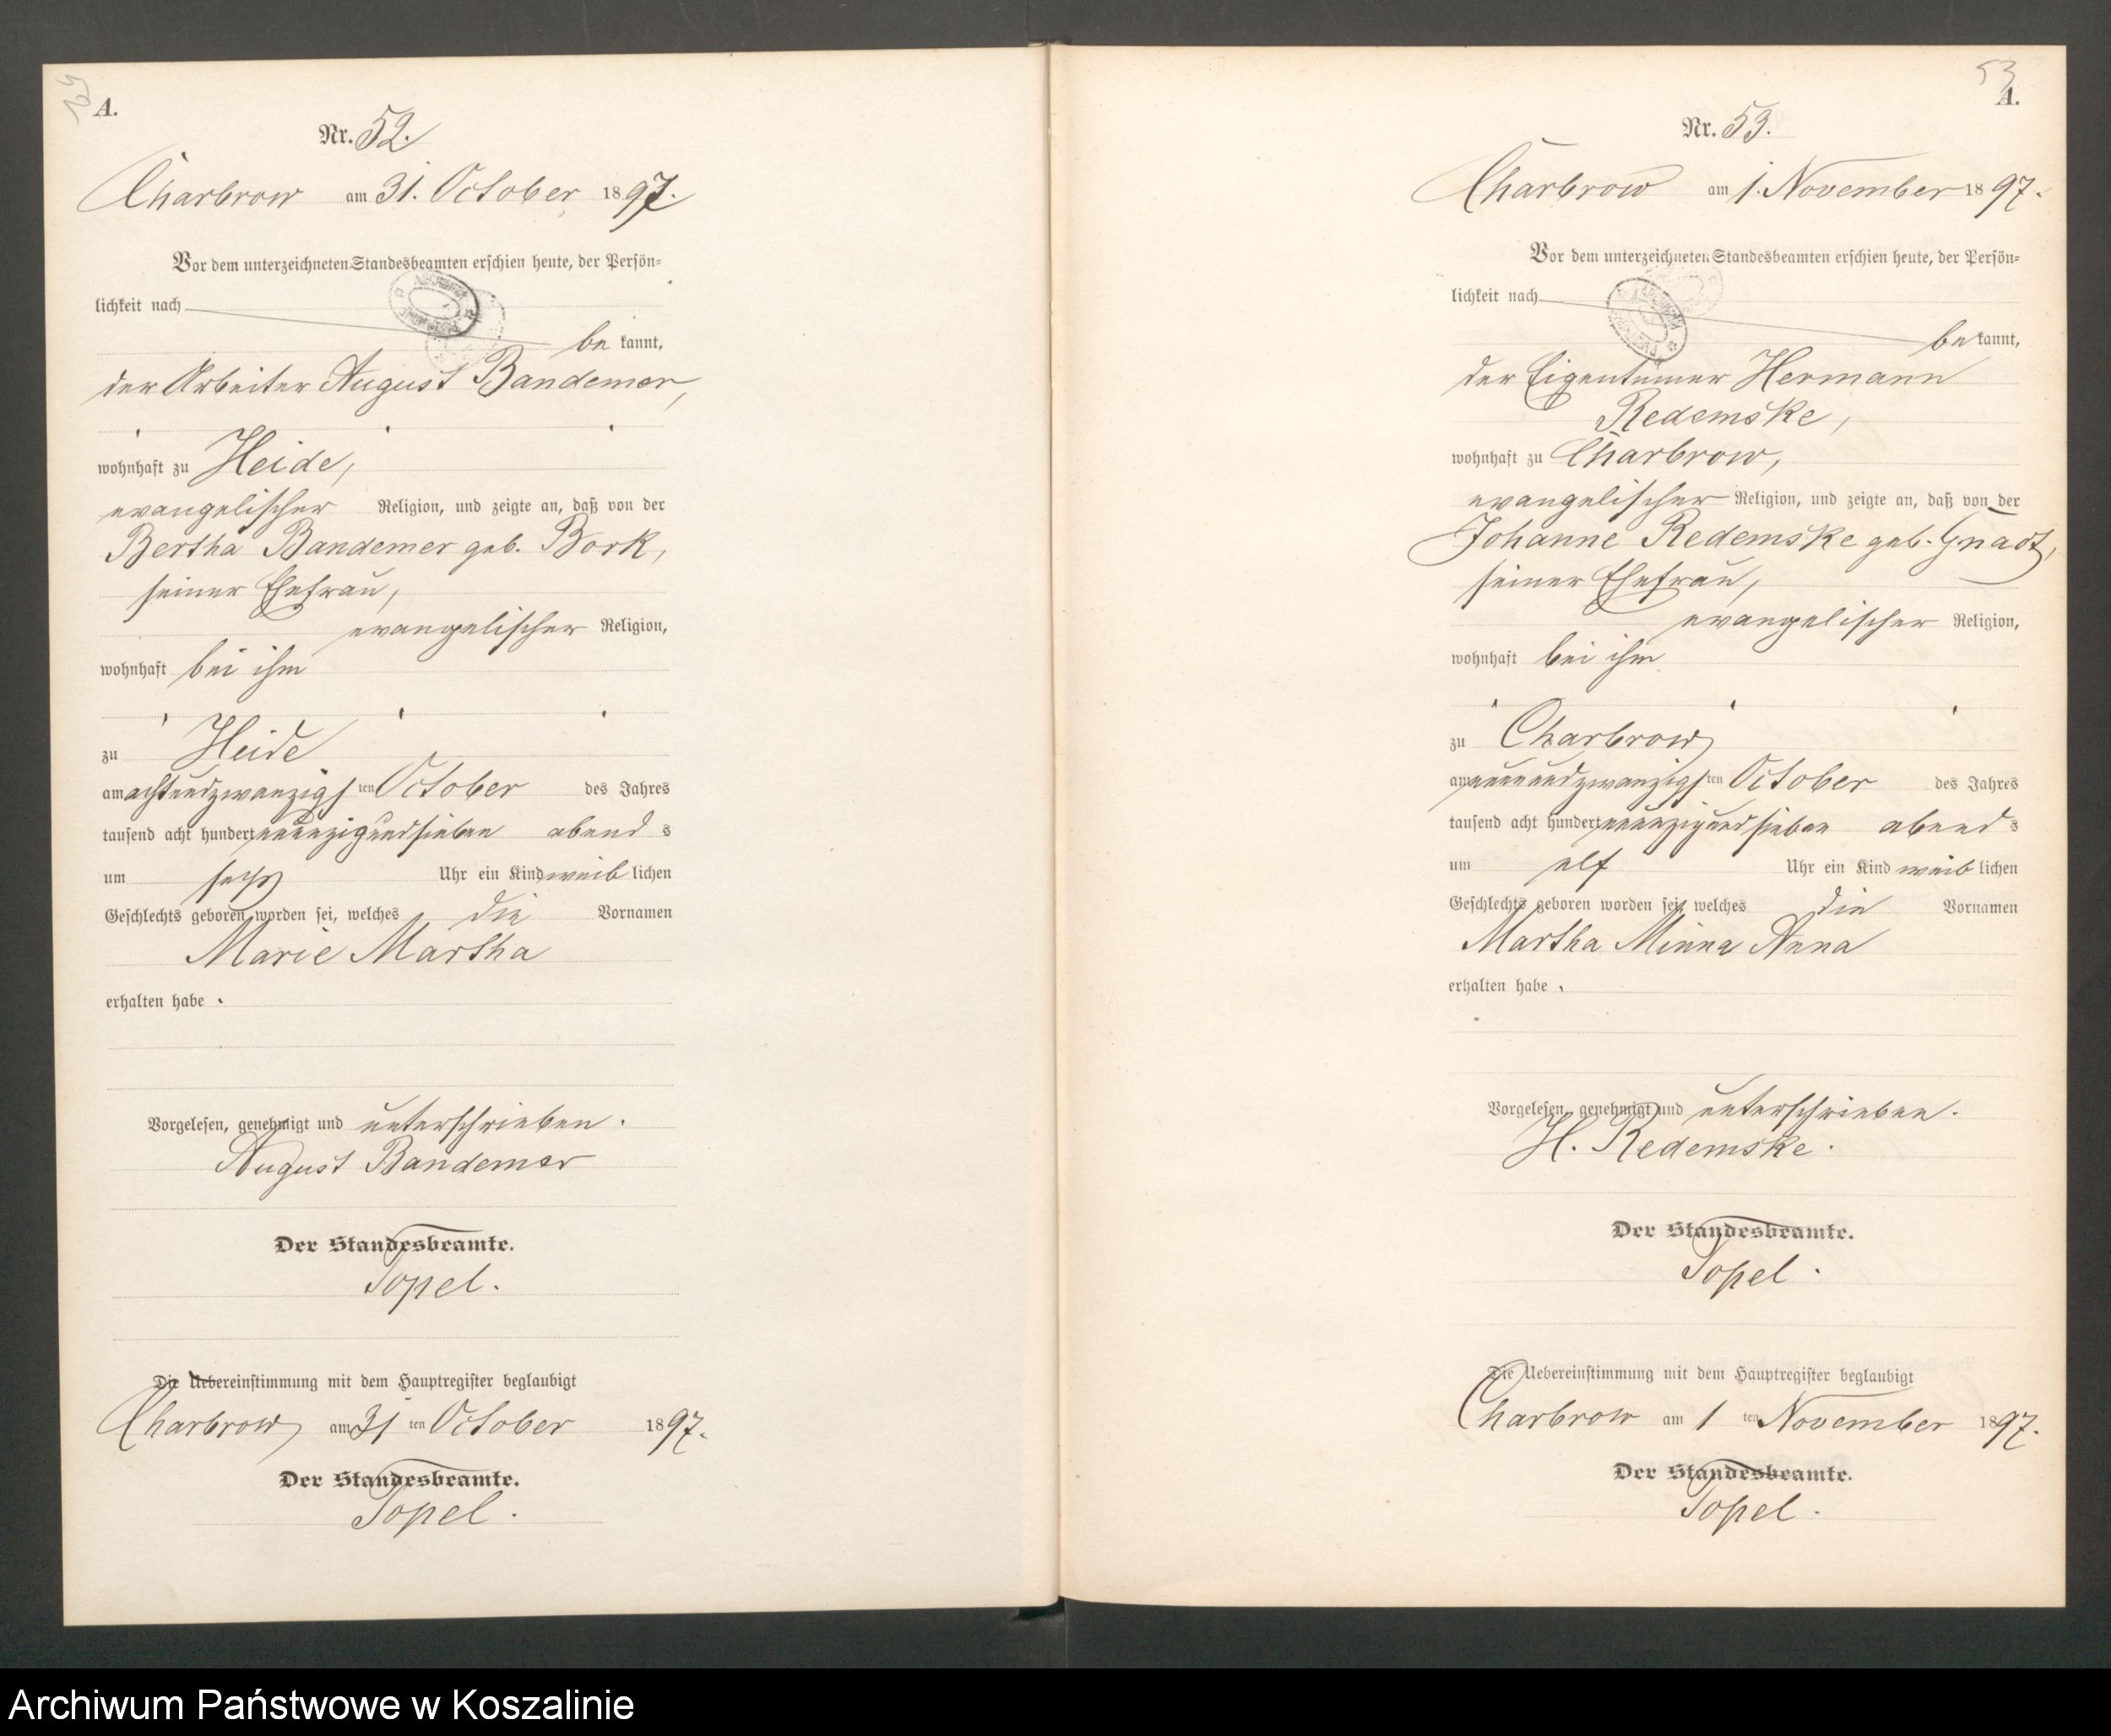 A.
Nr. 52.
Charbrow am 31. October 1897.
Vor dem unterzeichneten Standesbeamten erschien heute, der Persön-
lichkeit nach
be kannt,
der Arbeiter August Bandemer,
wohnhaft zu Heide,
evangelischer Religion, und zeigte an, daß von der
Bertha Bandemer geb. Bork,
seiner Ehefrau,
evangelischer Religion,
wohnhaft bei ihm
zu Heide
am achtundzwanzigsten October des Jahres
tausend acht hundert neunzig und sieben abends
um sechs Uhr ein Kind weiblichen
Geschlechts geboren worden sei, welches die Vornamen
Marie Martha
erhalten habe.
Vorgelesen, genehmigt und unterschrieben.
August Bandemer
Der Standesbeamte.
Topel.
Die Uebereinstimmung mit dem Hauptregister beglaubigt
Charbrow am 31 ten October 1897.
Der Standesbeamte.
Topel.
53
A.
Nr. 53.
Charbrow am 1. November 1897.
Vor dem unterzeichneten Standesbeamten erschien heute, der Persön-
lichkeit nach
be kannt,
der Eigentümer Hermann
Redemske,
wohnhaft zu Charbrow,
evangelischer Religion, und zeigte an, daß von der
Johanne Redemske geb. Gnadt,
seiner Ehefrau,
evangelischer Religion,
wohnhaft bei ihm
zu Charbrow
am neunundzwanzigsten October des Jahres
tausend acht hundert neunzig und sieben abends
um elf Uhr ein Kind weiblichen
Geschlechts geboren worden sei, welches die Vornamen
Martha Minna Anna
erhalten habe.
Vorgelesen, genehmigt und unterschrieben.
H. Redemske.
Der Standesbeamte.
Topel.
Die Uebereinstimmung mit dem Hauptregister beglaubigt
Charbrow am 1 ten November 1897.
Der Standesbeamte.
Topel.
Archiwum Państwowe w Koszalinie